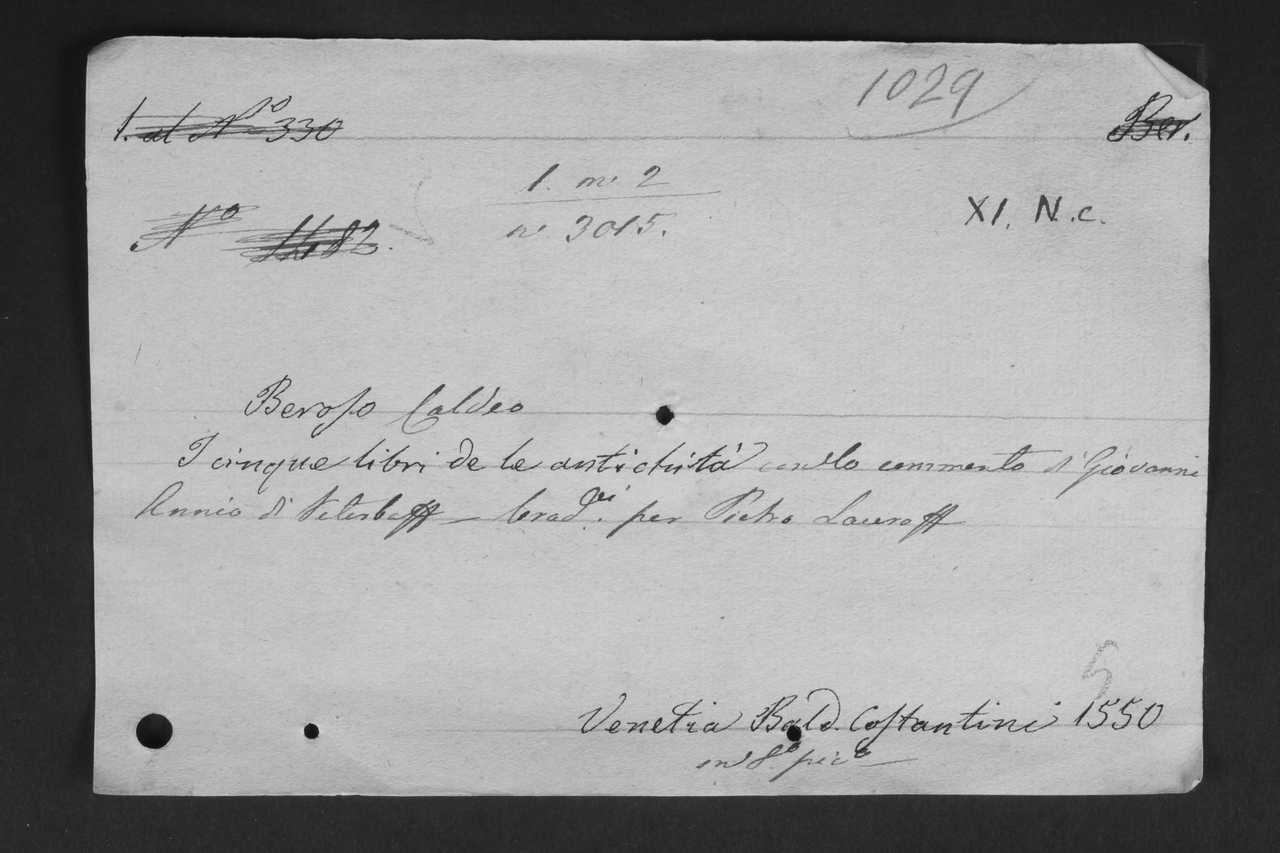 1029
1. al Nº 330
Ber.
1. m. 2
XI. N.c.
Nº 1482.
n. 3015.
Beroso Caldeo
I cinque libri de le antichità con lo commento di Giovanni
Annio di Viterbo // – Trad.ti per Pietro Lauro //
5
Venetia Bald. Costantini 1550
in 8º picº